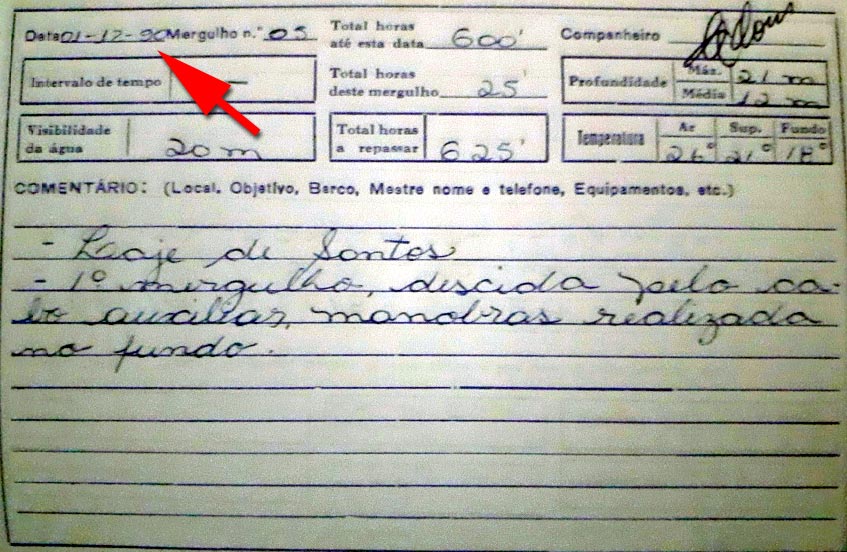 Data 01-12-90 Mergulho n.° 05 Total horas até esta data 600' Companheiro
Intervalo de tempo — Total horas deste mergulho 25' Profundidade Máx. 21 m Média 12 m
Visibilidade da água 20 m Total horas a repassar 625' Temperatura Ar 26° Sup. 21° Fundo 18°
COMENTÁRIO: (Local, Objetivo, Barco, Mestre nome e telefone, Equipamentos, etc.)
- Laje de Santos
- 1º mergulho, descida pelo ca-
bo auxiliar, manobras realizada
no fundo.